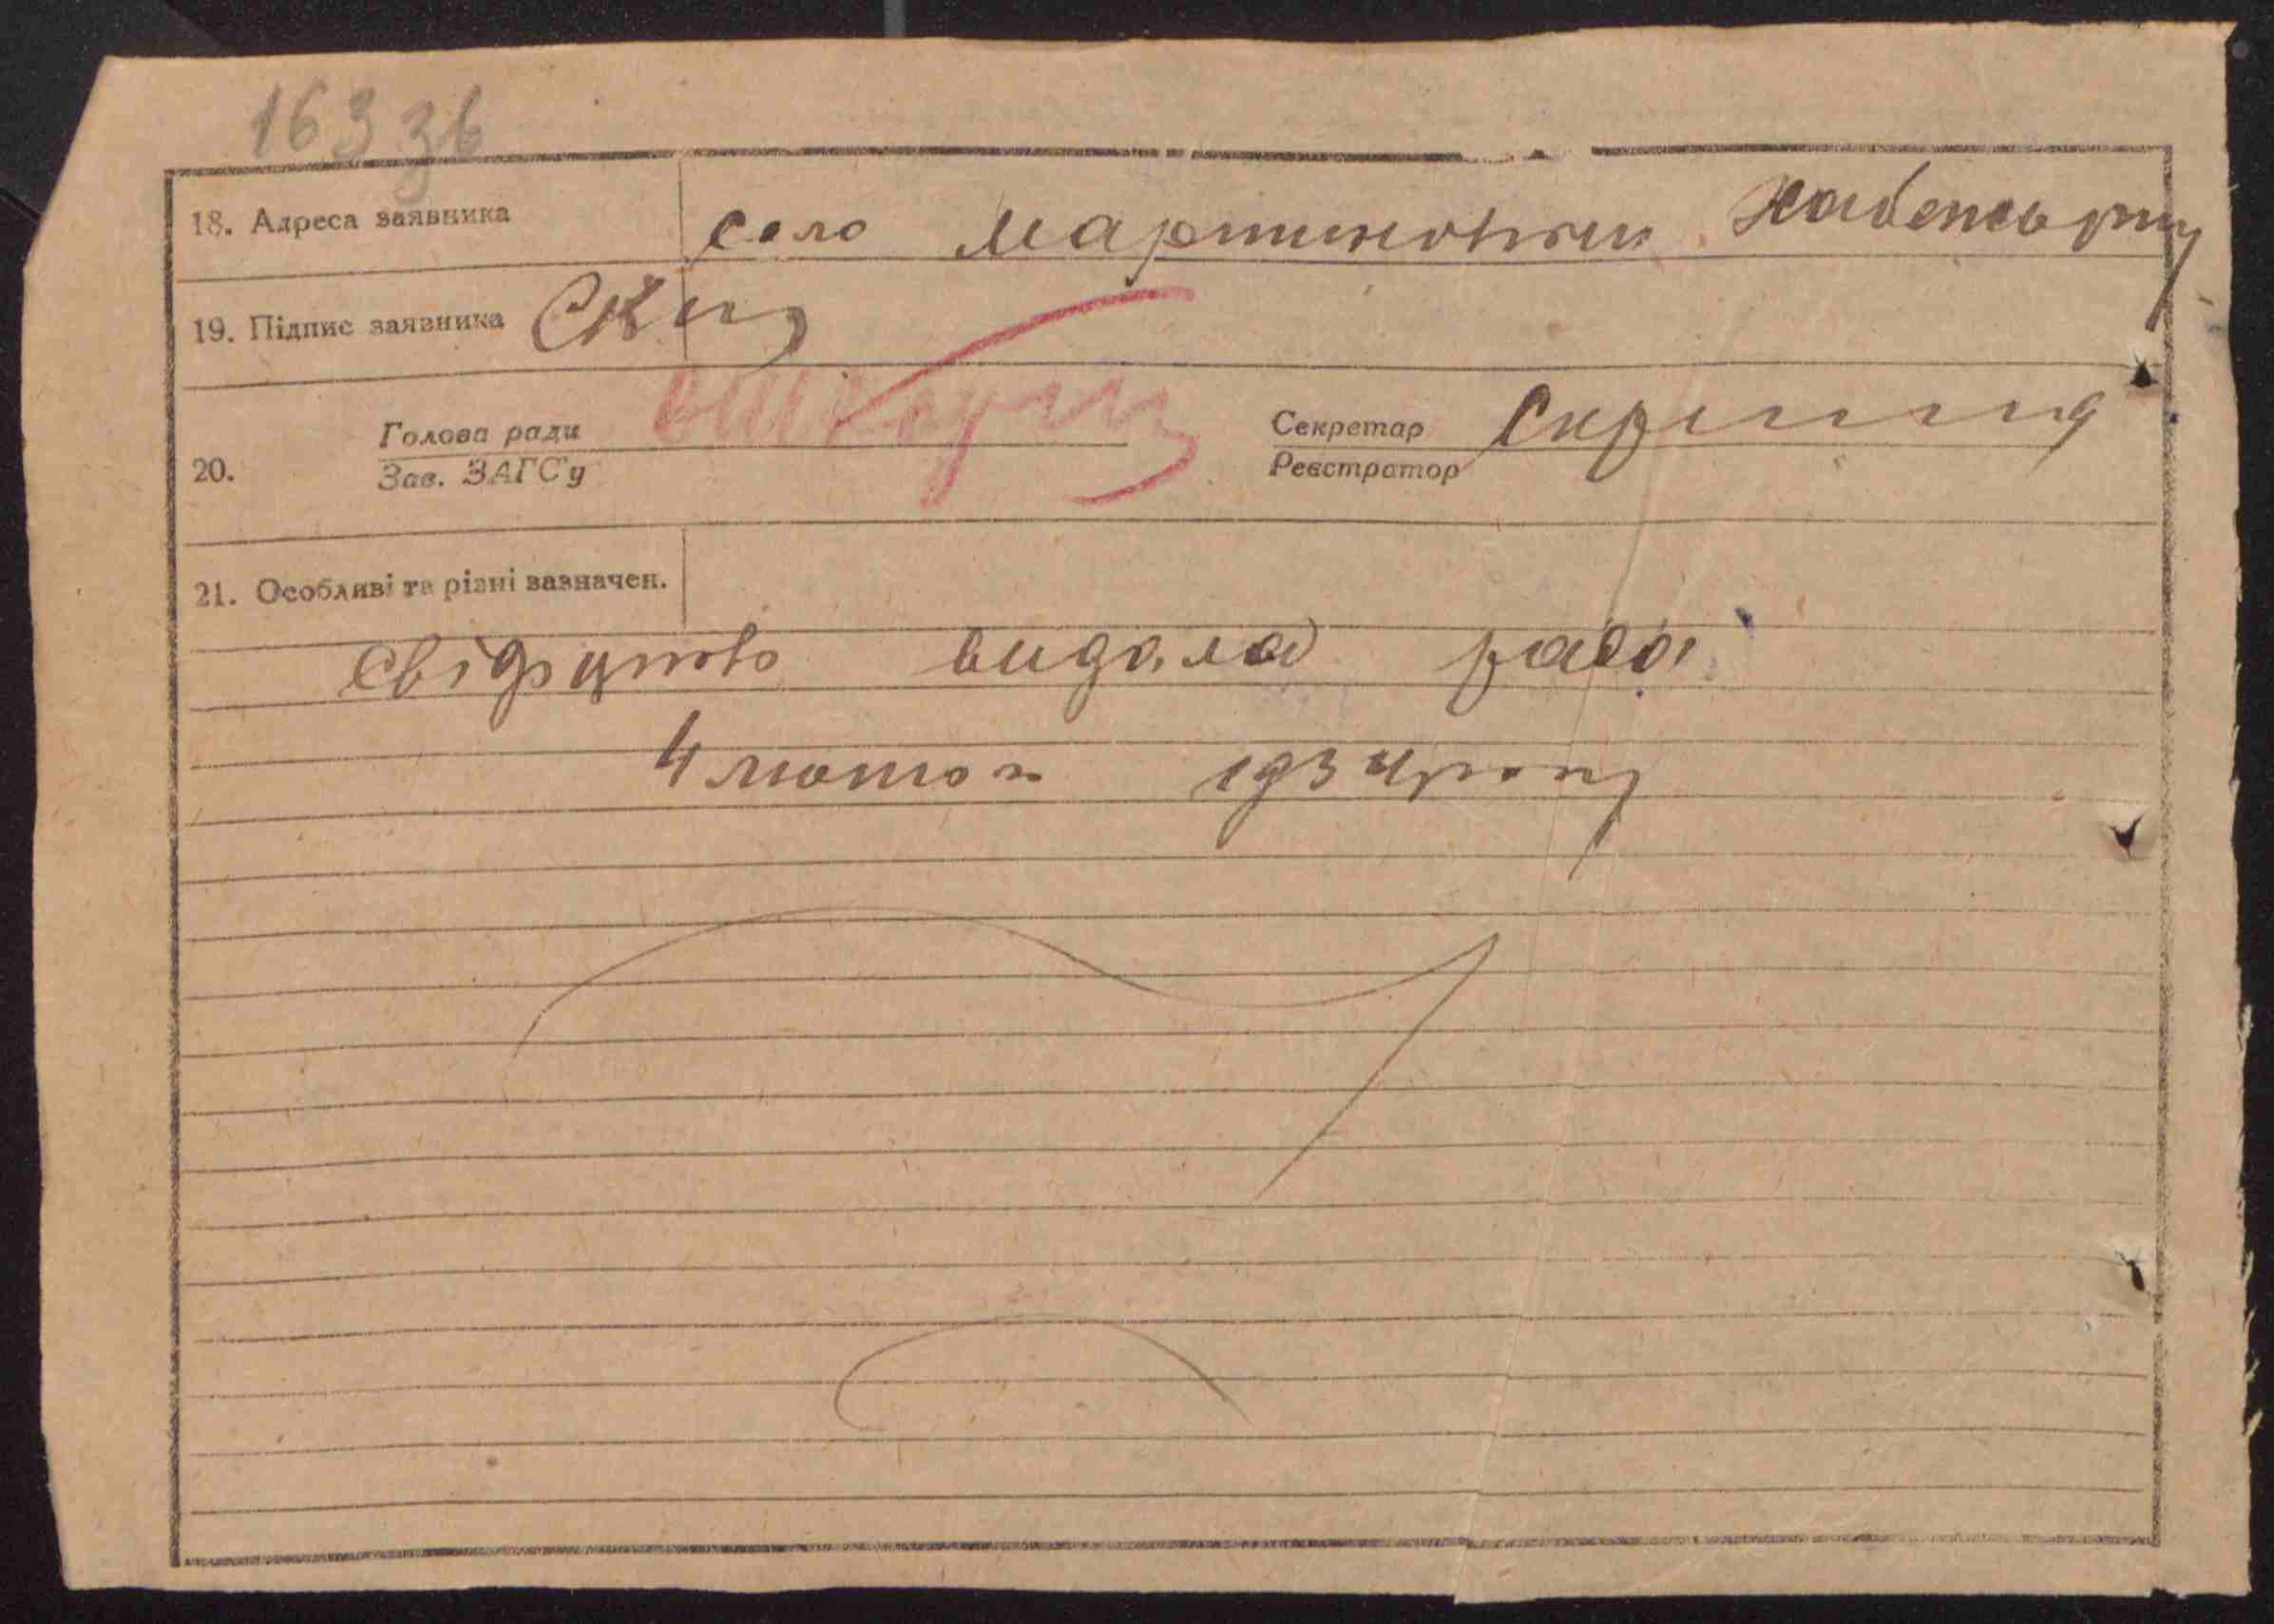 163 зв
18. Адреса заявника село Мартиновки
19. Підпис заявника
Голова ради Секретар
20. Зав. ЗАГСу Реєстратор
21. Особливі та різні зазначен.
свідоцтво видала рада
4 лютого 1934 року